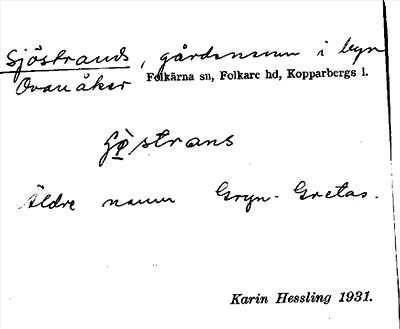 Sjöstrands, gårdsnamn i byn
Ovanåker Folkärna sn, Folkare hd, Kopparbergs l.
strans
Äldre namn Gryn-Gretas.
Karin Hessling 1931.